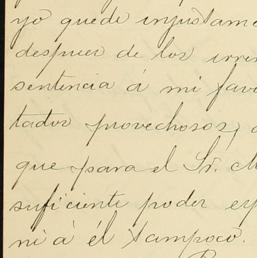 yo quede injustame
despues de los irre
sentencia á mi favo
tados provechosos,
que para el Sr. M
suficiente poder ey
ni á él tampoco.